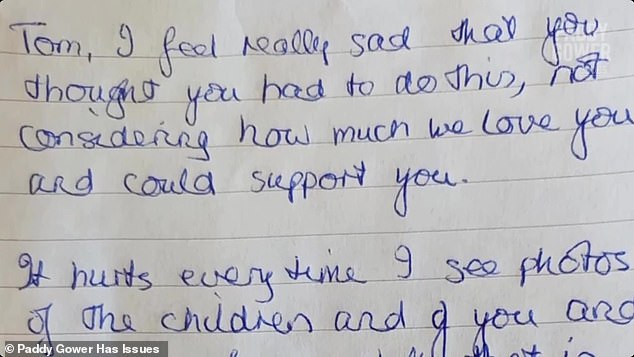 Tom, I feel really sad that you
thought you had to do this, not
considering how much we love you
and could support you.
It hurts every time I see photos
of the children and of you and
© Paddy Gower Has Issues